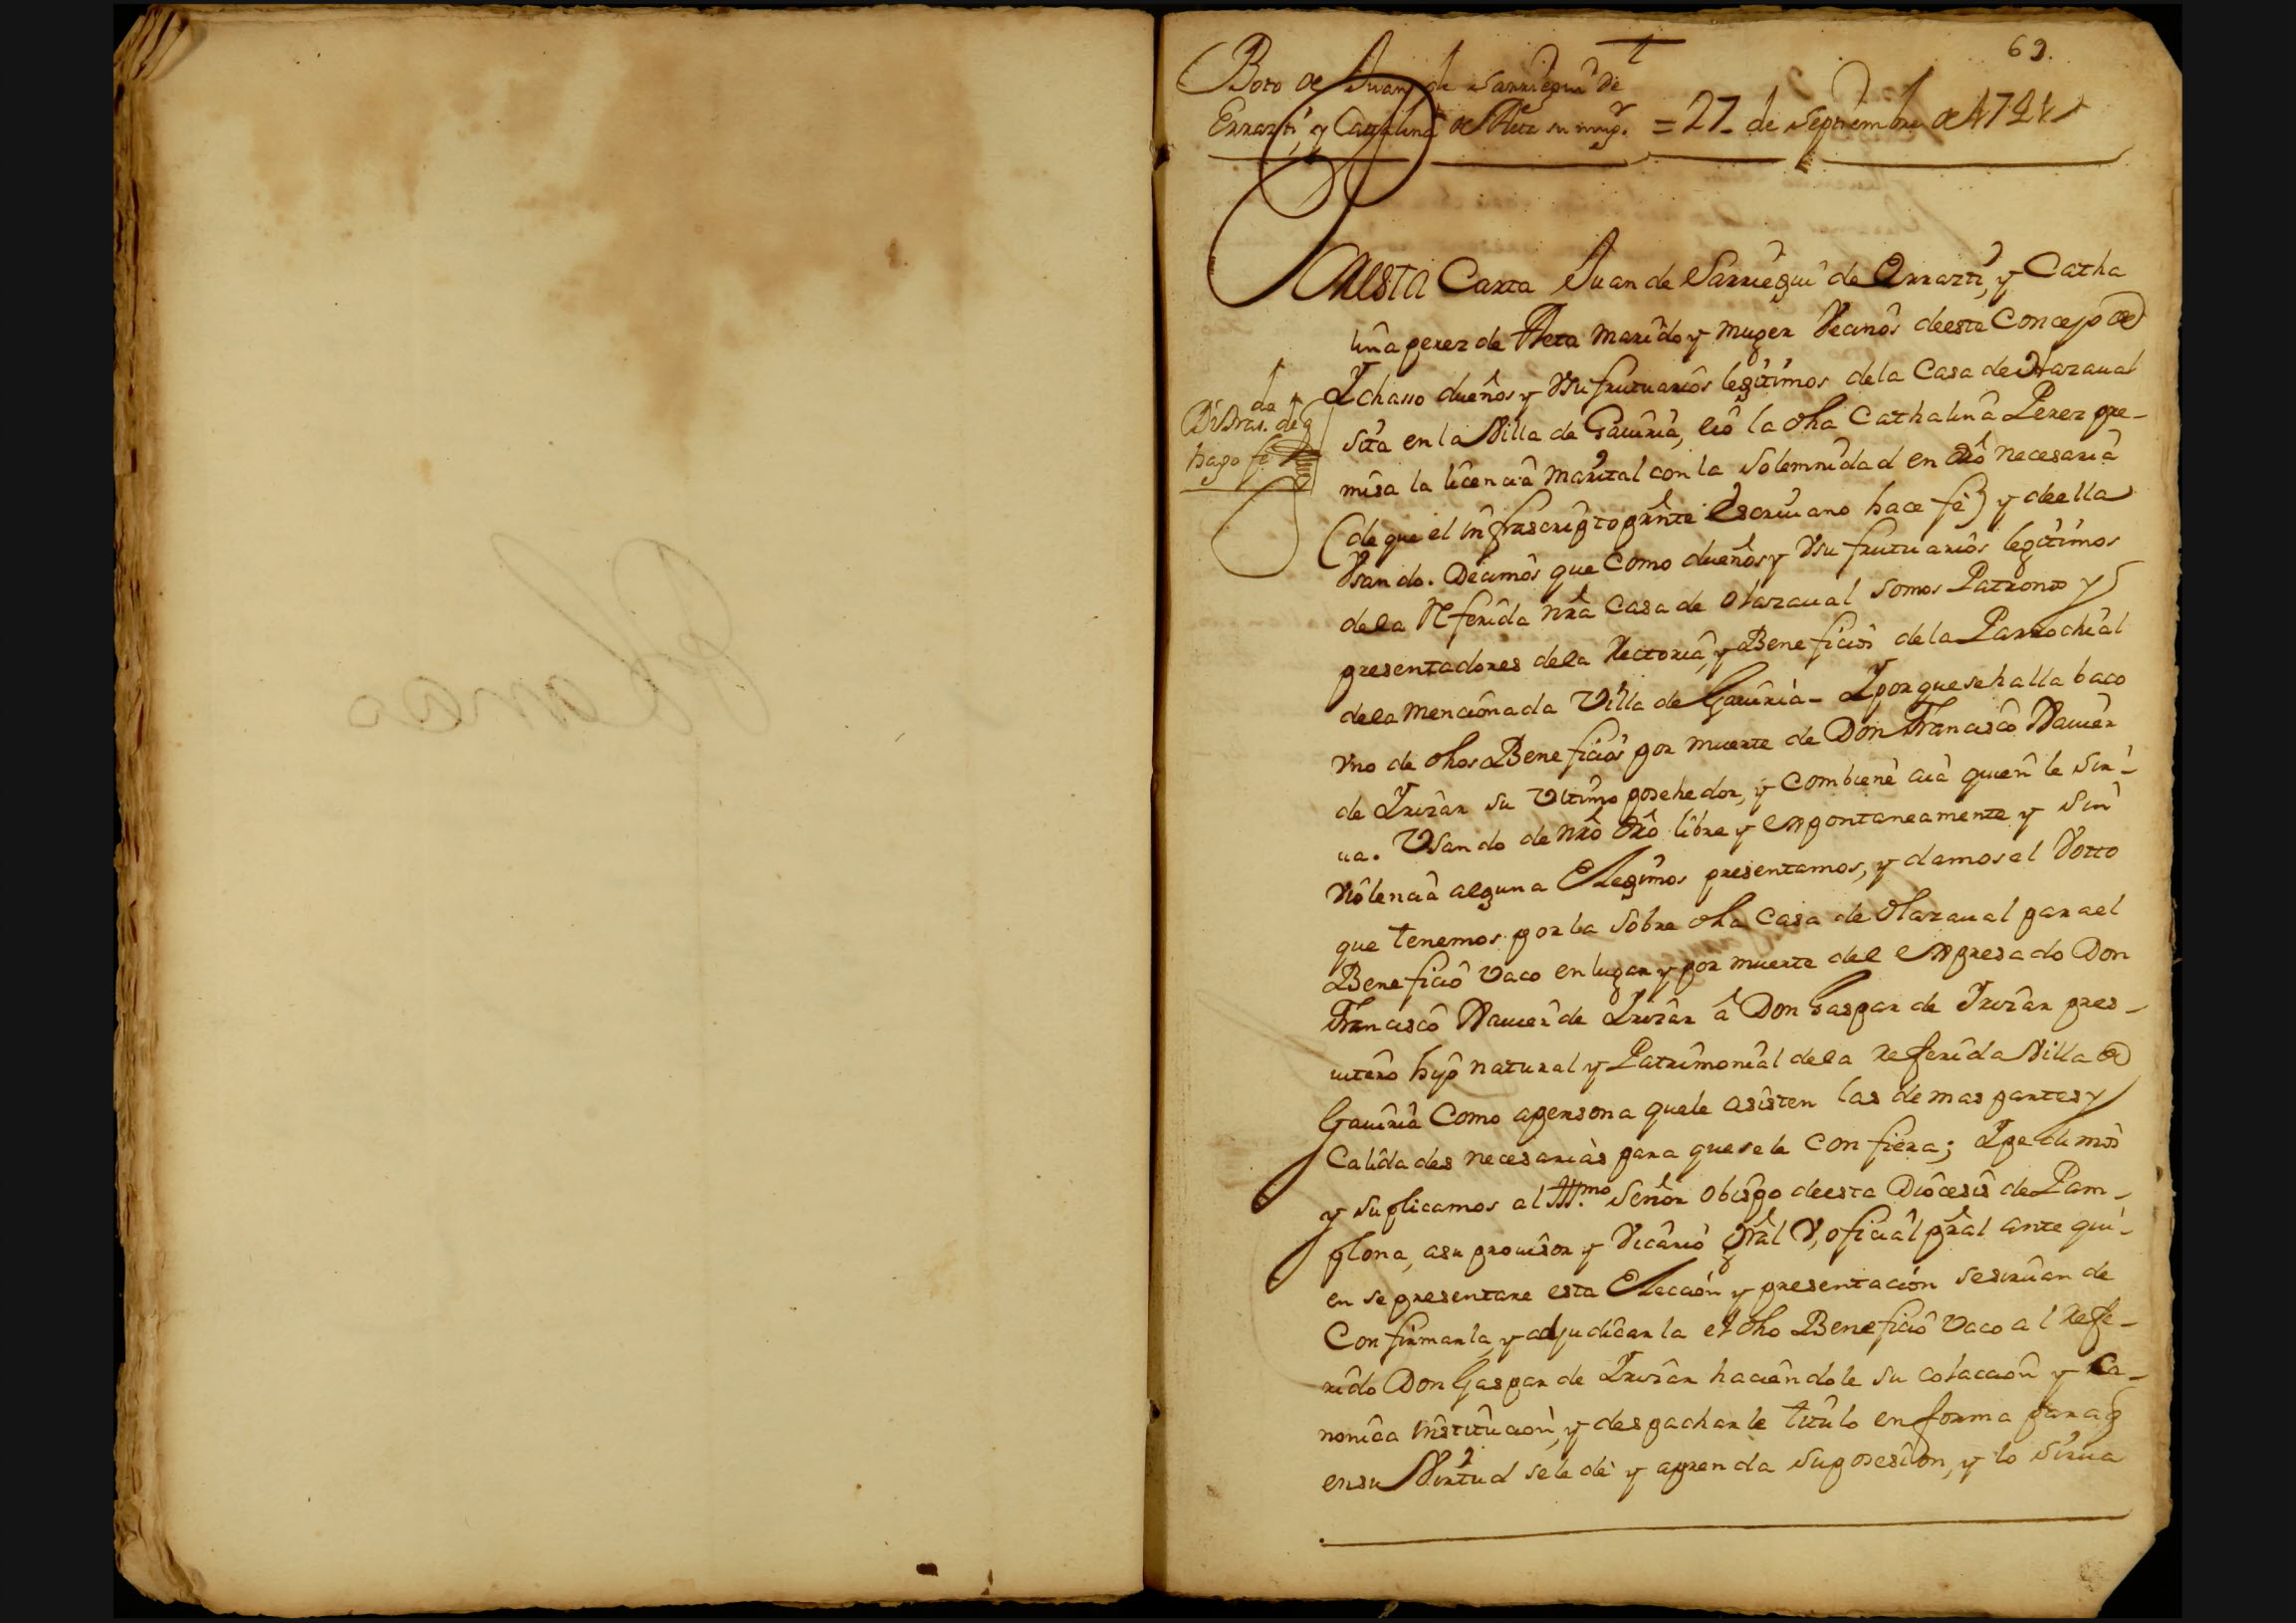 69.
Boto de Juan de Sarriegui de
Errazti, y Cathalina de Aeta su mugr. = 27 de Septiembre de 1721
Pr Aesta Carta Juan de Sarriegui de Errazti, y Catha
lina perez de Aeta marido y muger Vecinos deeste Concejo de
Ychasso dueños y Vsufrutuarios legitimos dela Casa de Olazaual
Di Tras.do dé q
hago fe
sita en la Villa de Gauiria, eio la dha Cathalina Perez pre-
misa la licencia marital con la solemnidad en dro necesaria
(de que el infrascripto prnte Escriuano hace fe) y deella
Vsando. Decimos que como dueños y Vsufrutuarios legitimos
dela Referida nra Casa de Olazaual somos Patronos y
presentadores dela Rectoria, y Beneficios dela Parrochial
dela mencionada Villa de Gauiria - Y porque se halla baco
Vno de dhos Beneficios por muerte de Don Francisco Xauier
de Yrizar su Vltimo posehedor, y combiene aia quien le sir-
ua. Vsando de nro dro libre y espontaneamente y sin
Violencia alguna Elegimos presentamos, y damos el Votto
que tenemos por la sobre dha Casa de Olazaual para el
Beneficio Vaco en lugar y por muerte del expresado Don
Francisco Xauier de Yrizar â Don Gaspar de Yrizar pres-
uitero hijo natural y Patrimonial dela referida Villa de
Gauiria Como apersona quele asisten las demas partes y
Calidades necesarias para que se le confiera; Y pedimos
y suplicamos al Ill.mo Señor obispo deesta Diocesis de Pam-
plona, asu prouisor y Vicario Gral V, oficial pral ante qui-
en se presentare esta Eleccion y presentación sesiruan de
Confirmarla, y adjudicarla el dho Beneficio Vaco al Refe-
rido Don Gaspar de Yrizar haciendole su colaccion y Ca-
nonica institucion, y despacharle titulo en forma para q
ensu Virtud sele dè y aprenda suposesion, y lo sirua